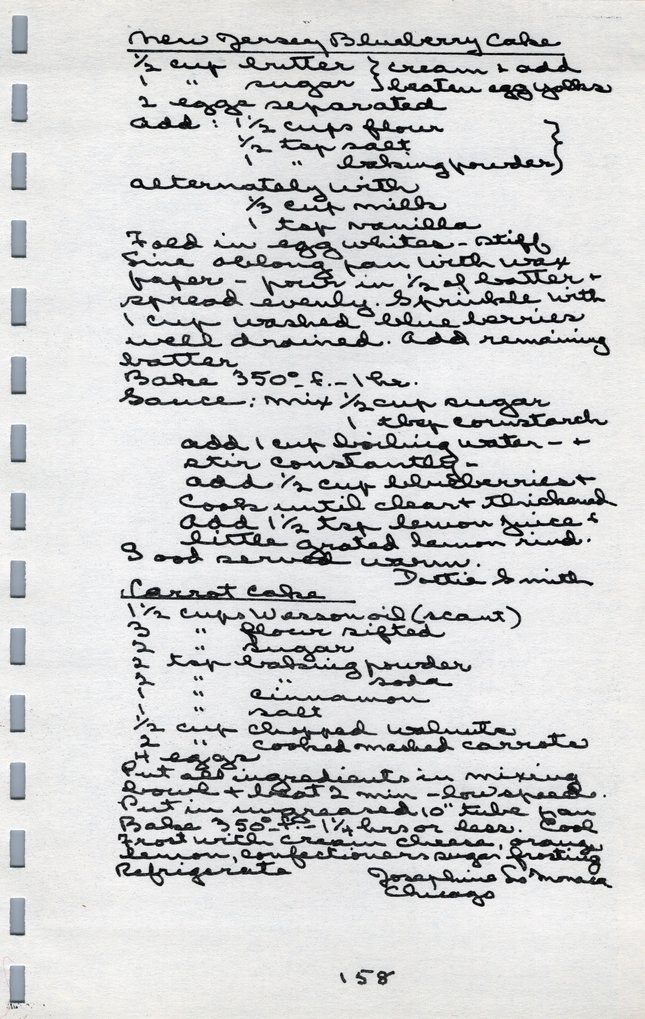 New Jersey Blueberry Cake
½ cup butter } cream + add
1 " sugar } beaten egg yolks
2 eggs separated
add: 1½ cups flour }
½ tsp salt
1 " baking powder }
alternately with
⅓ cup milk
1 tsp vanilla
Fold in egg whites - stiff
Line oblong pan with wax
paper - pour in ½ of batter +
spread evenly. Sprinkle with
1 cup washed blueberries
well drained. Add remaining
batter
Bake 350° F. - 1 hr.
Sauce: mix ½ cup sugar
1 tbsp cornstarch
add 1 cup boiling water - +
stir constantly -
add ½ cup blueberries +
Cook until clear + thickened
Add 1½ tsp lemon juice +
little grated lemon rind.
Good served warm.
Dottie Smith
Carrot Cake
1½ cups Wesson oil (scant)
3 " flour sifted
2 " sugar
2 tsp baking powder
2 " " soda
1 " cinnamon
1 " salt
½ cup chopped walnuts
2 " cooked mashed carrots
4 eggs
Put all ingredients in mixing
bowl + beat 2 min - low speed.
Put in ungreased 10" tube pan
Bake 350° F. - 1¼ hrs or less. Cool
Frost with cream cheese, orange
lemon, confectioners sugar frosting
Refrigerate Josephine Lo Monaca
Chicago
158